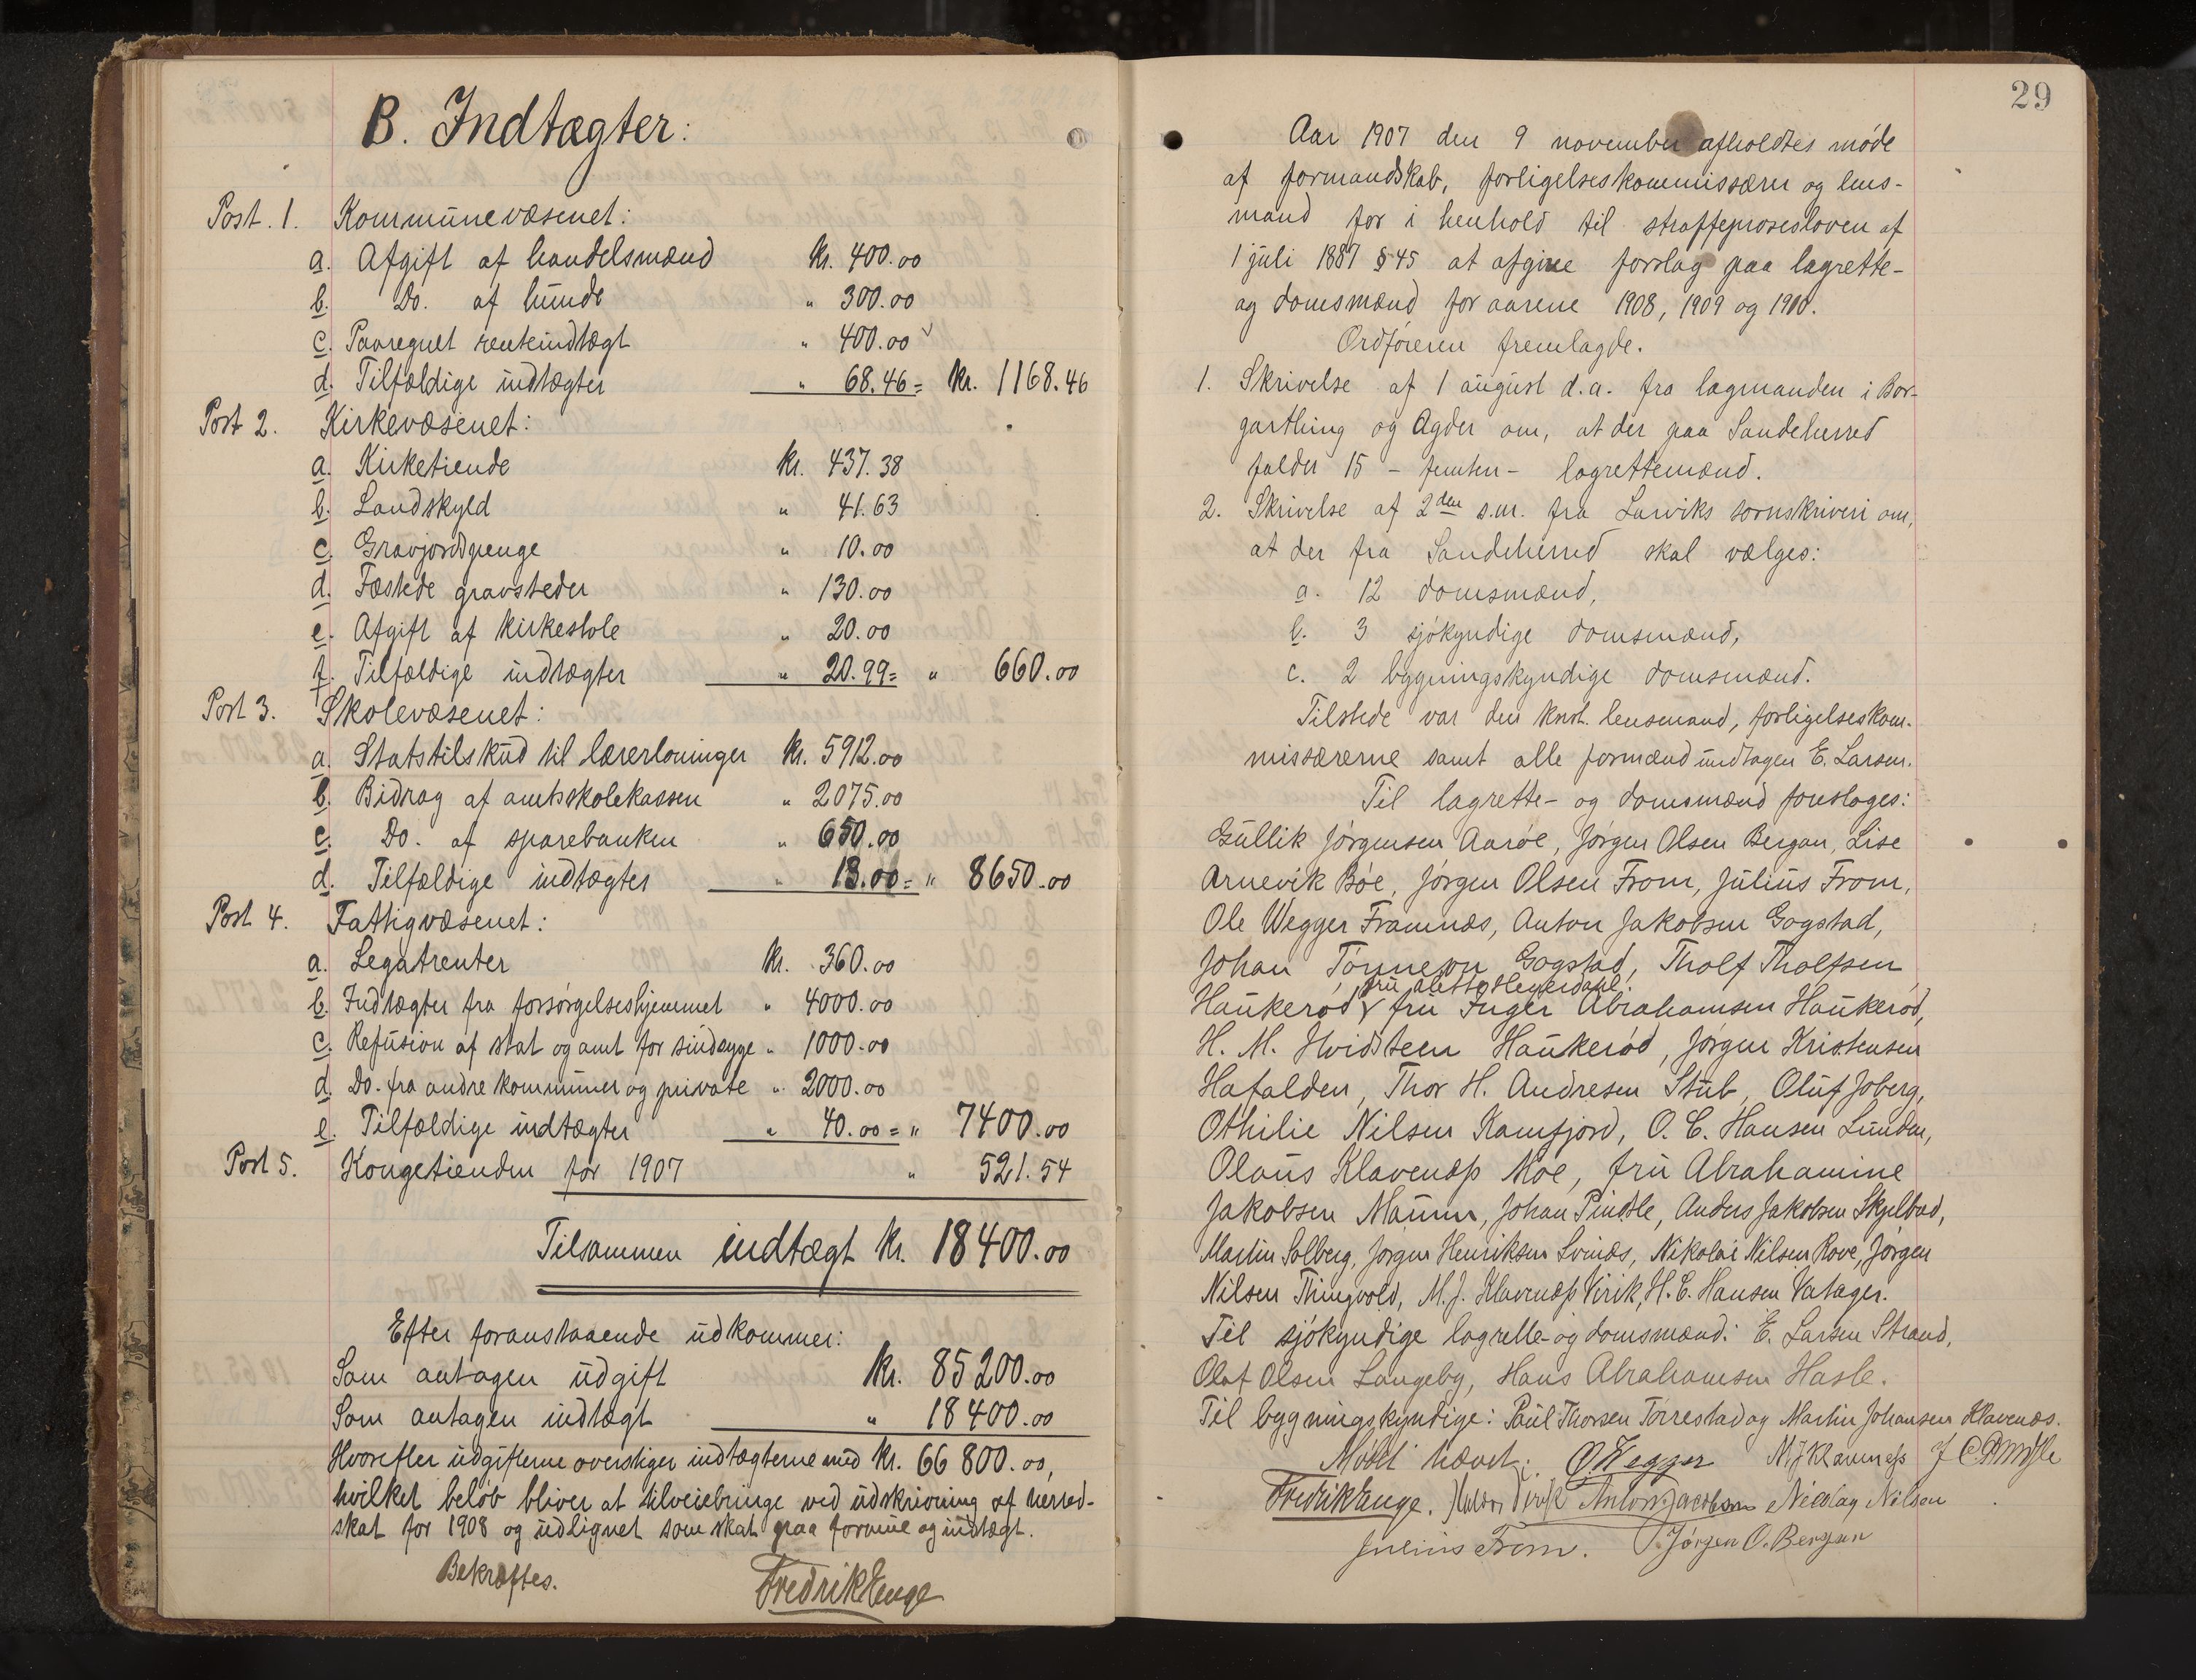 B. Indtægter:
Post. 1. Kommunevæsenet:
a. Afgift af handelsmænd kr. 400.00
b. Do. af hunde " 300.00
c. Paaregnet renteindtægt " 400.00
d. Tilfældige indtægter " 68.46 = kr. 1168.46
Post 2. Kirkevæsenet:
a. Kirketiende kr. 437.38
b. Landskyld " 41.63
c. Gravjordspenge " 10.00
d. Fæstede gravsteder " 130.00
e. Afgift af kirkestole " 20.00
f. Tilfældige indtægter " 20.99 = " 660.00
Post 3. Skolevæsenet:
a. Statstilskud til lærerlønninger kr. 5912.00
b. Bidrag af amtsskolekassen " 2075.00
c. Do. af sparebanken " 650.00
d. Tilfældige indtægter " 13.00 = " 8650.00
Post 4. Fattigvæsenet:
a. Legatrenter kr. 360.00
b. Indtægter fra forsørgelseshjemmet " 4000.00
c. Refusion af stat og amt for sindsyge " 1000.00
d. Do. fra andre kommuner og private " 2000.00
e. Tilfældige indtægter " 40.00 = " 7400.00
Post 5. Kongetienden for 1907 " 521.54
Tilsammen indtægt kr. 18400.00
Efter foranstaaende udkommer:
Som antagen udgift kr. 85200.00
Som antagen indtægt " 18400.00
Hvorefter udgifterne overstiger indtægterne med kr. 66800.00,
hvilket beløb bliver at tilveiebringe ved udskrivning af herred-
skat for 1908 og udlignet som skat paa formue og indtægt.
Bekræftes.
Fredrik Enge
29
Aar 1907 den 9 november afholdtes møde
af formandskab, forligelseskommissærer og lens-
mand for i henhold til straffeprosesloven af
1 juli 1887 § 45 at afgive forslag paa lagrette-
og domsmænd for aarene 1908, 1909 og 1910.
Ordføreren fremlagde.
1. Skrivelse af 1 august d.a. fra lagmanden i Bor-
garthing og Agder om, at der paa Sandeherred
falder 15 - femten - lagrettemænd.
2. Skrivelse af 2den s.m. fra Larviks sorenskriveri om,
at der fra Sandeherred skal vælges:
a. 12 domsmænd,
b. 3 sjøkyndige domsmænd,
c. 2 bygningskyndige domsmænd.
Tilstede var den konst. lensmand, forligelseskom-
missærerne samt alle formænd undtagen E. Larsen.
Til lagrette- og domsmænd foresloges:
Gullik Jørgensen Aarøe, Jørgen Olsen Bergan, Lise
Arnevik Bøe, Jørgen Olsen From, Julius From,
Ole Wegger Framnæs, Anton Jakobsen Gogstad,
Johan Tønneson Gogstad, Tholf Tholfsen
fru
Haukerød, fru Inger Abrahamsen Haukerød,
H. M. Hvidsteen Haukerød, Jørgen Kristensen
Hafalden, Thor H. Andresen Stub, Oluf Joberg,
Othilie Nilsen Kamfjord, O. C. Hansen Lunden,
Olaus Klavenæss Moe, fru Abrahamine
Jakobsen Maurn, Johan Pindsle, Anders Jakobsen Skjelbred,
Martin Solberg, Jørgen Henriksen Svinæs, Nikolai Nilsen Rove, Jørgen
Nilsen Thingvold, M. J. Klavenæss Virik, H. C. Hansen Vatager.
Til sjøkyndige lagrette- og domsmænd: E. Larsen Strand,
Olaf Olsen Langeby, Hans Abrahamsen Hasle.
Til bygningskyndige: Paul Thorsen Torrestad og Martin Johansen Klavenæs.
Mødet hævet: O Wegger M J Klavenæss
Fredrik Enge. Anton Jacobsen Nicolay Nilsen
Julius From. Jørgen O. Bergan